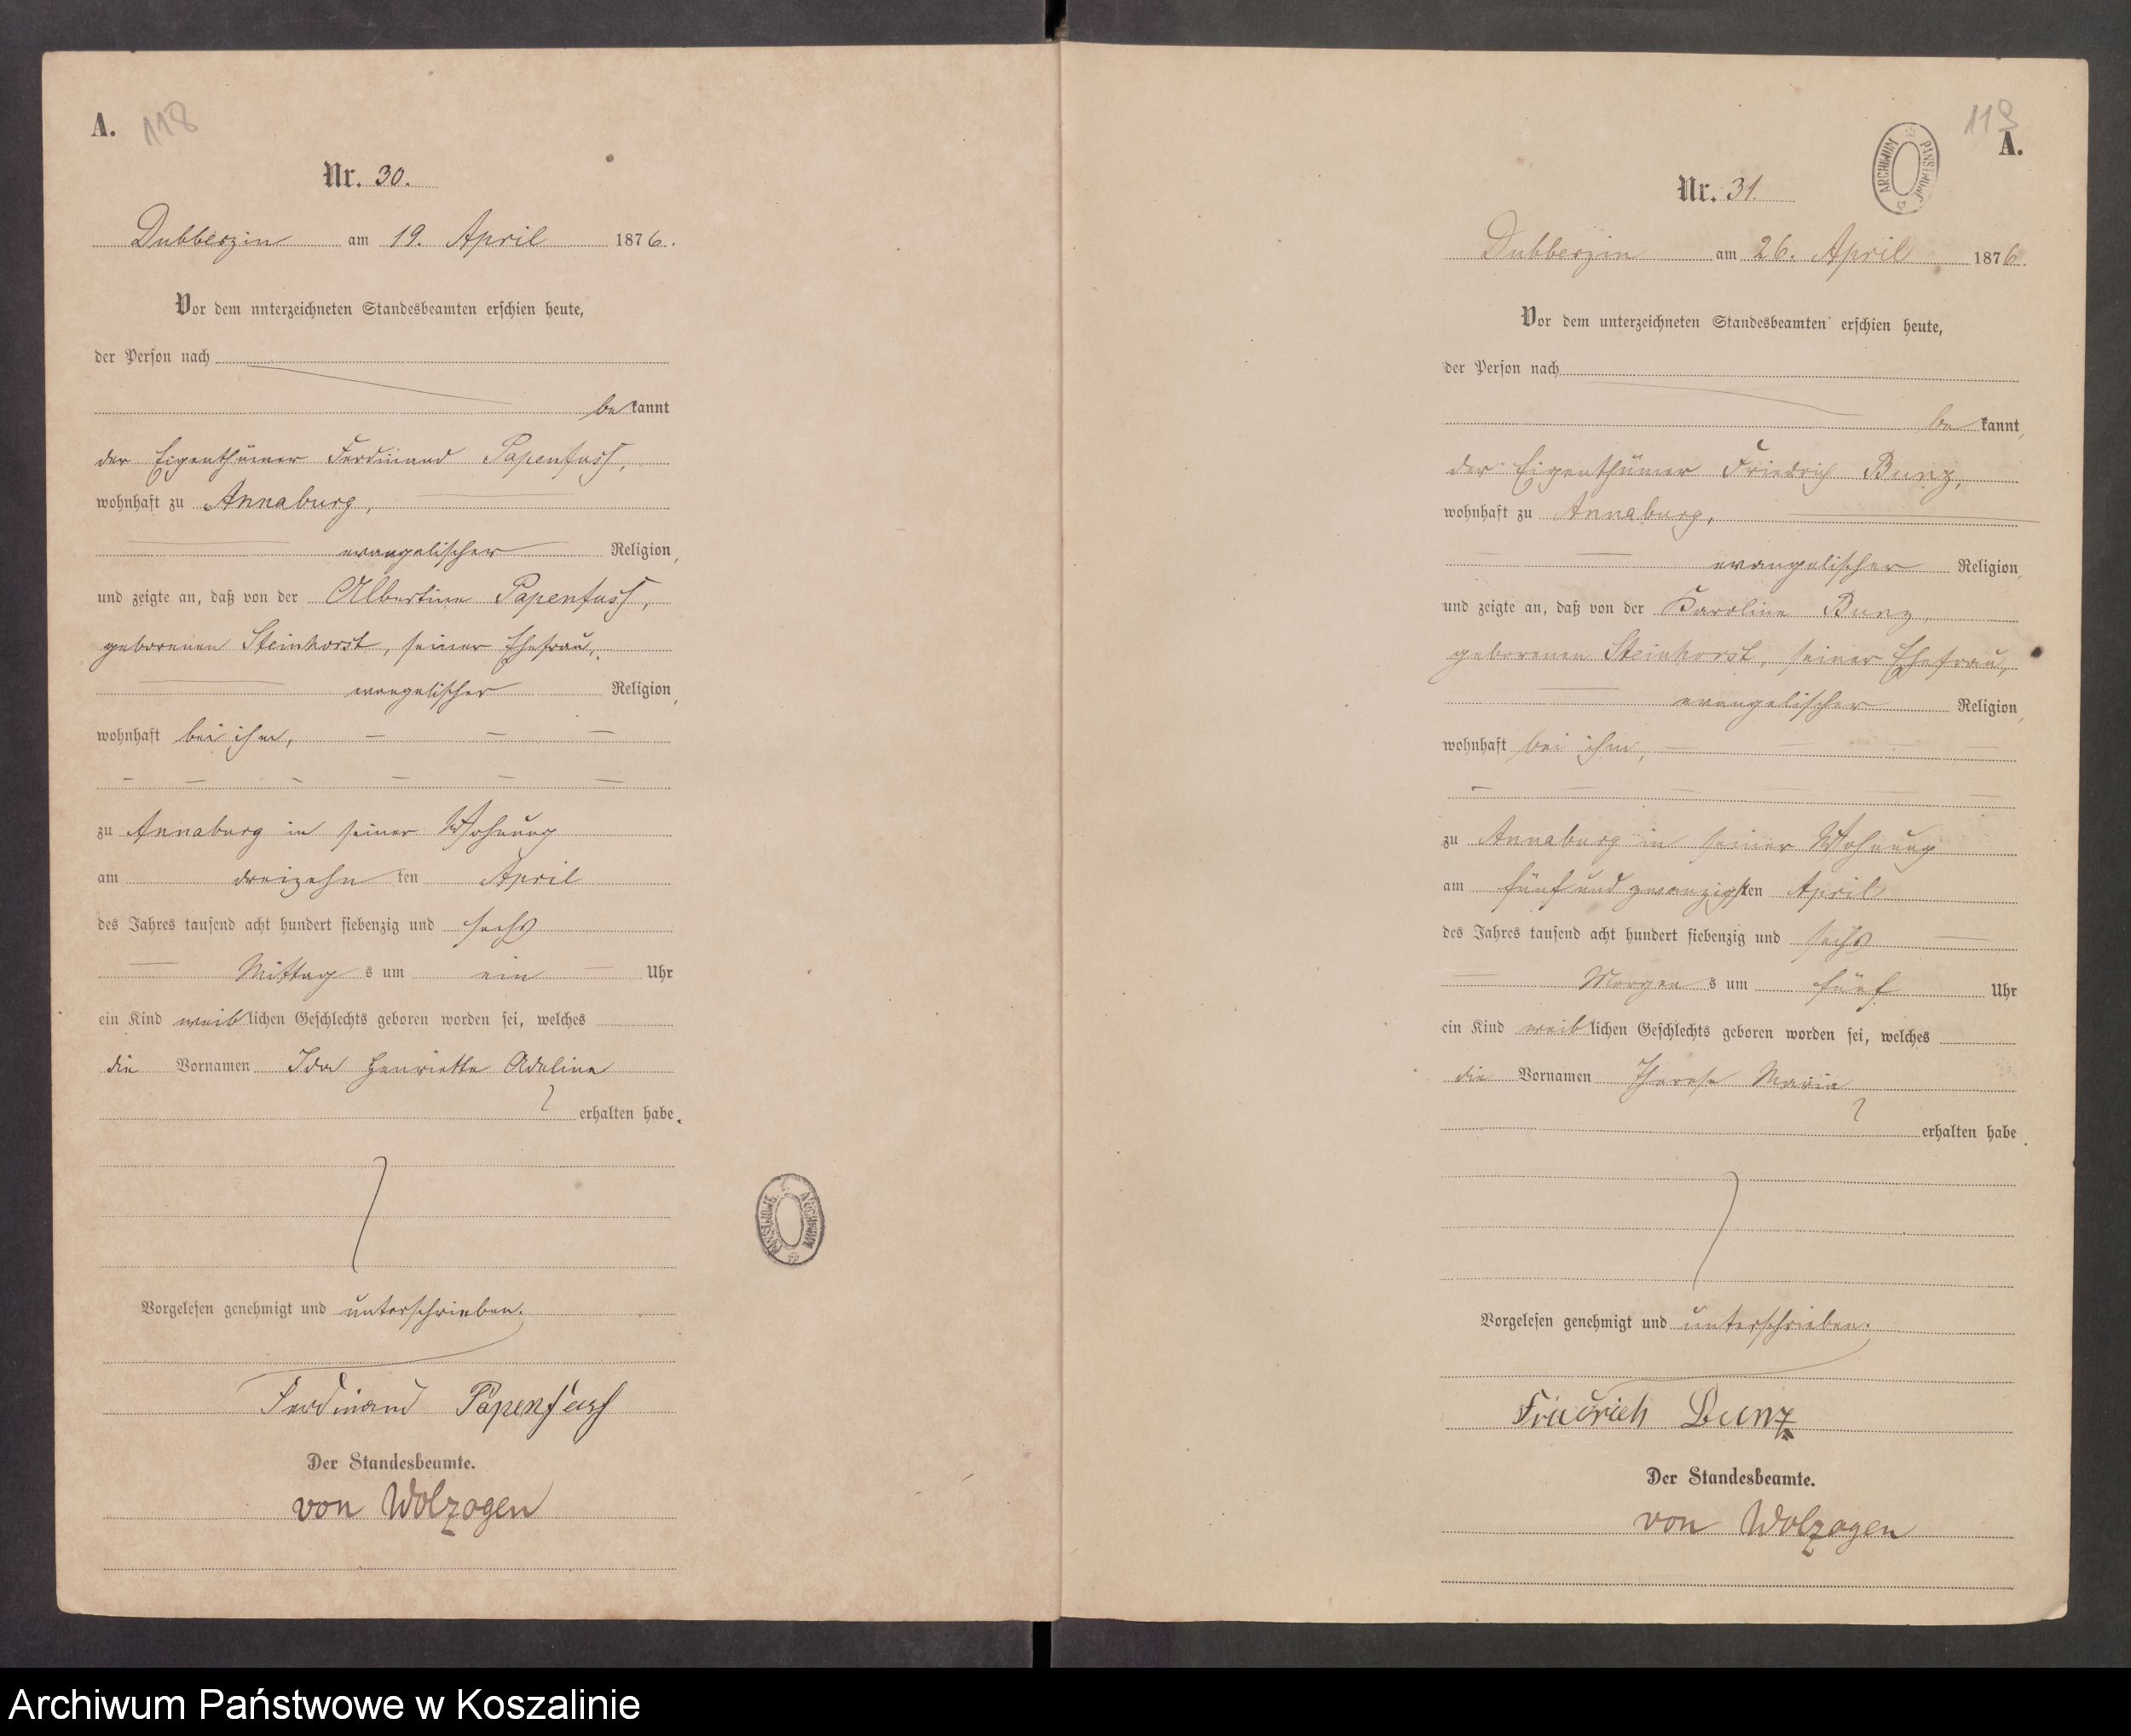 A. 118
Nr. 30.
Dubberzin am 19. April 1876.
Vor dem unterzeichneten Standesbeamten erschien heute,
der Person nach
bekannt
der Eigenthümer Ferdinand Papenfuss,
wohnhaft zu Annaburg,
evangelischer Religion,
und zeigte an, daß von der Albertine Papenfuss,
geborenen Steinhorst, seiner Ehefrau,
evangelischer Religion,
wohnhaft bei ihm,
zu Annaburg in seiner Wohnung
am dreizehn ten April
des Jahres tausend acht hundert siebenzig und sechs
Mittag s um ein Uhr
ein Kind weiblichen Geschlechts geboren worden sei, welches
die Vornamen Ida Henriette Adeline
erhalten habe.
Vorgelesen genehmigt und unterschrieben.
Ferdinand Papenfuss
Der Standesbeamte.
von Wolzogen
ARCHIWUM PAŃSTWOWE
119
A.
ARCHIWUM PAŃSTWOWE
Nr. 31.
Dubberzin am 26. April 1876.
Vor dem unterzeichneten Standesbeamten erschien heute,
der Person nach
bekannt,
der Eigenthümer Friedrich Bunz,
wohnhaft zu Annaburg,
evangelischer Religion,
und zeigte an, daß von der Karoline Bunz,
geborenen Steinhorst, seiner Ehefrau,
evangelischer Religion,
wohnhaft bei ihm,
zu Annaburg in seiner Wohnung
am fünf und zwanzigsten April
des Jahres tausend acht hundert siebenzig und sechs
Morgen s um fünf Uhr
ein Kind weiblichen Geschlechts geboren worden sei, welches
die Vornamen Therese Marie
erhalten habe.
Vorgelesen genehmigt und unterschrieben.
Friedrich Bunz
Der Standesbeamte.
von Wolzogen
Archiwum Państwowe w Koszalinie